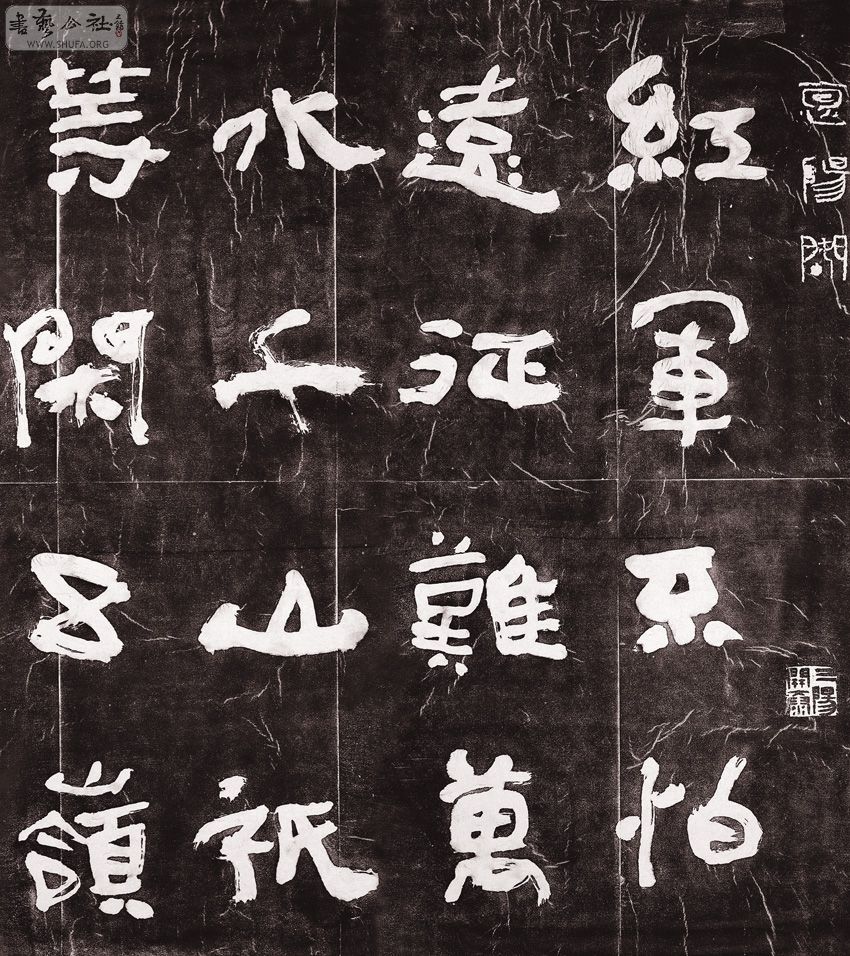 紅軍不怕
遠征難萬
水千山祇
等閑五嶺
書藝公社
WWW.SHUFA.ORG